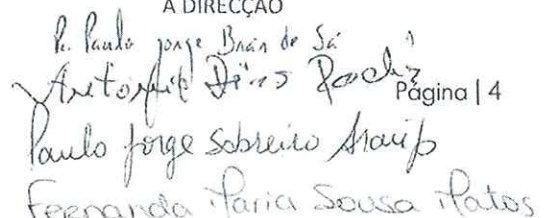 A DIRECÇÃO
P. Paulo Jorge Brás de Sá
António Dias Rocha
Página | 4
Paulo Jorge Sobreiro Araújo
Fernanda Maria Sousa Matos